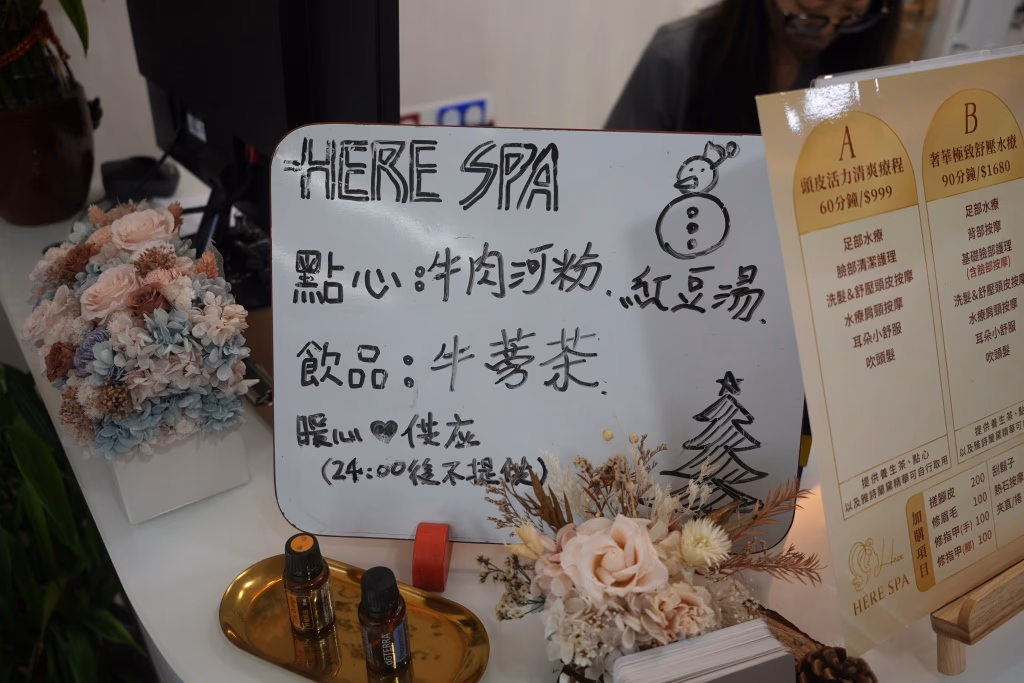 HERE SPA
點心:牛肉河粉.紅豆湯.
飲品:牛蒡茶.
暖心♥供応
(24:00後不提供)
dōTERRA
A
頭皮活力清爽療程
60分鐘/$999
足部水療
臉部清潔護理
洗髮&舒壓頭皮按摩
水療肩頸按摩
耳朵小舒服
吹頭髮
提供養生茶、點心
以及雅詩蘭黛精華可自行取用
B
奢華極致舒壓水療
90分鐘/$1680
足部水療
背部按摩
基礎臉部護理
(含臉部按摩)
洗髮&舒壓頭皮按摩
水療肩頸按摩
耳朵小舒服
吹頭髮
提供養生茶、點心
以及雅詩蘭黛精華可自行取用
加購項目
搓腳皮 200
修眉毛 100
修指甲(手) 100
修指甲(腳) 100
刮鬍子
熱石按摩
夾直/捲
Here
HERE SPA